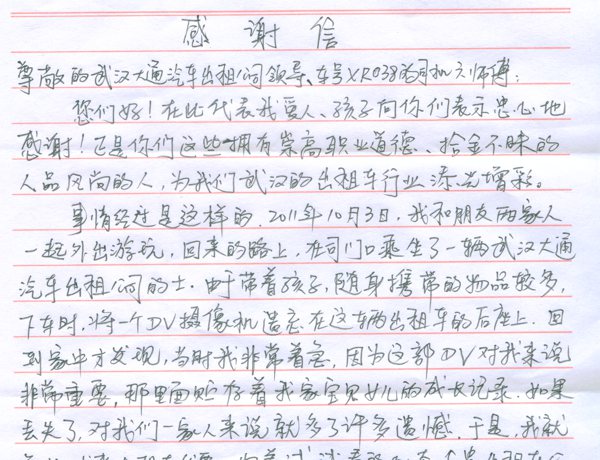 感谢信
尊敬的武汉大通汽车出租公司领导、车号XR038的司机方师傅:
您们好!在此代表我爱人、孩子向你们表示忠心地
感谢!正是你们这些拥有崇高职业道德、拾金不昧的
人品风尚的人,为我们武汉的出租车行业添光增彩。
事情经过是这样的.2011年10月3日,我和朋友两家人
一起外出游玩,回来的路上,在司门口乘坐了一辆武汉大通
汽车出租公司的士.由于带着孩子,随身携带的物品较多,
下车时,将一个DV摄像机遗忘在这辆出租车的后座上.回
到家中才发现,当时我非常着急,因为这部DV对我来说
非常重要,那里面贮存着我家宝贝女儿的成长记录.如果
丢失了,对我们一家人来说就多了许多遗憾.于是,我就